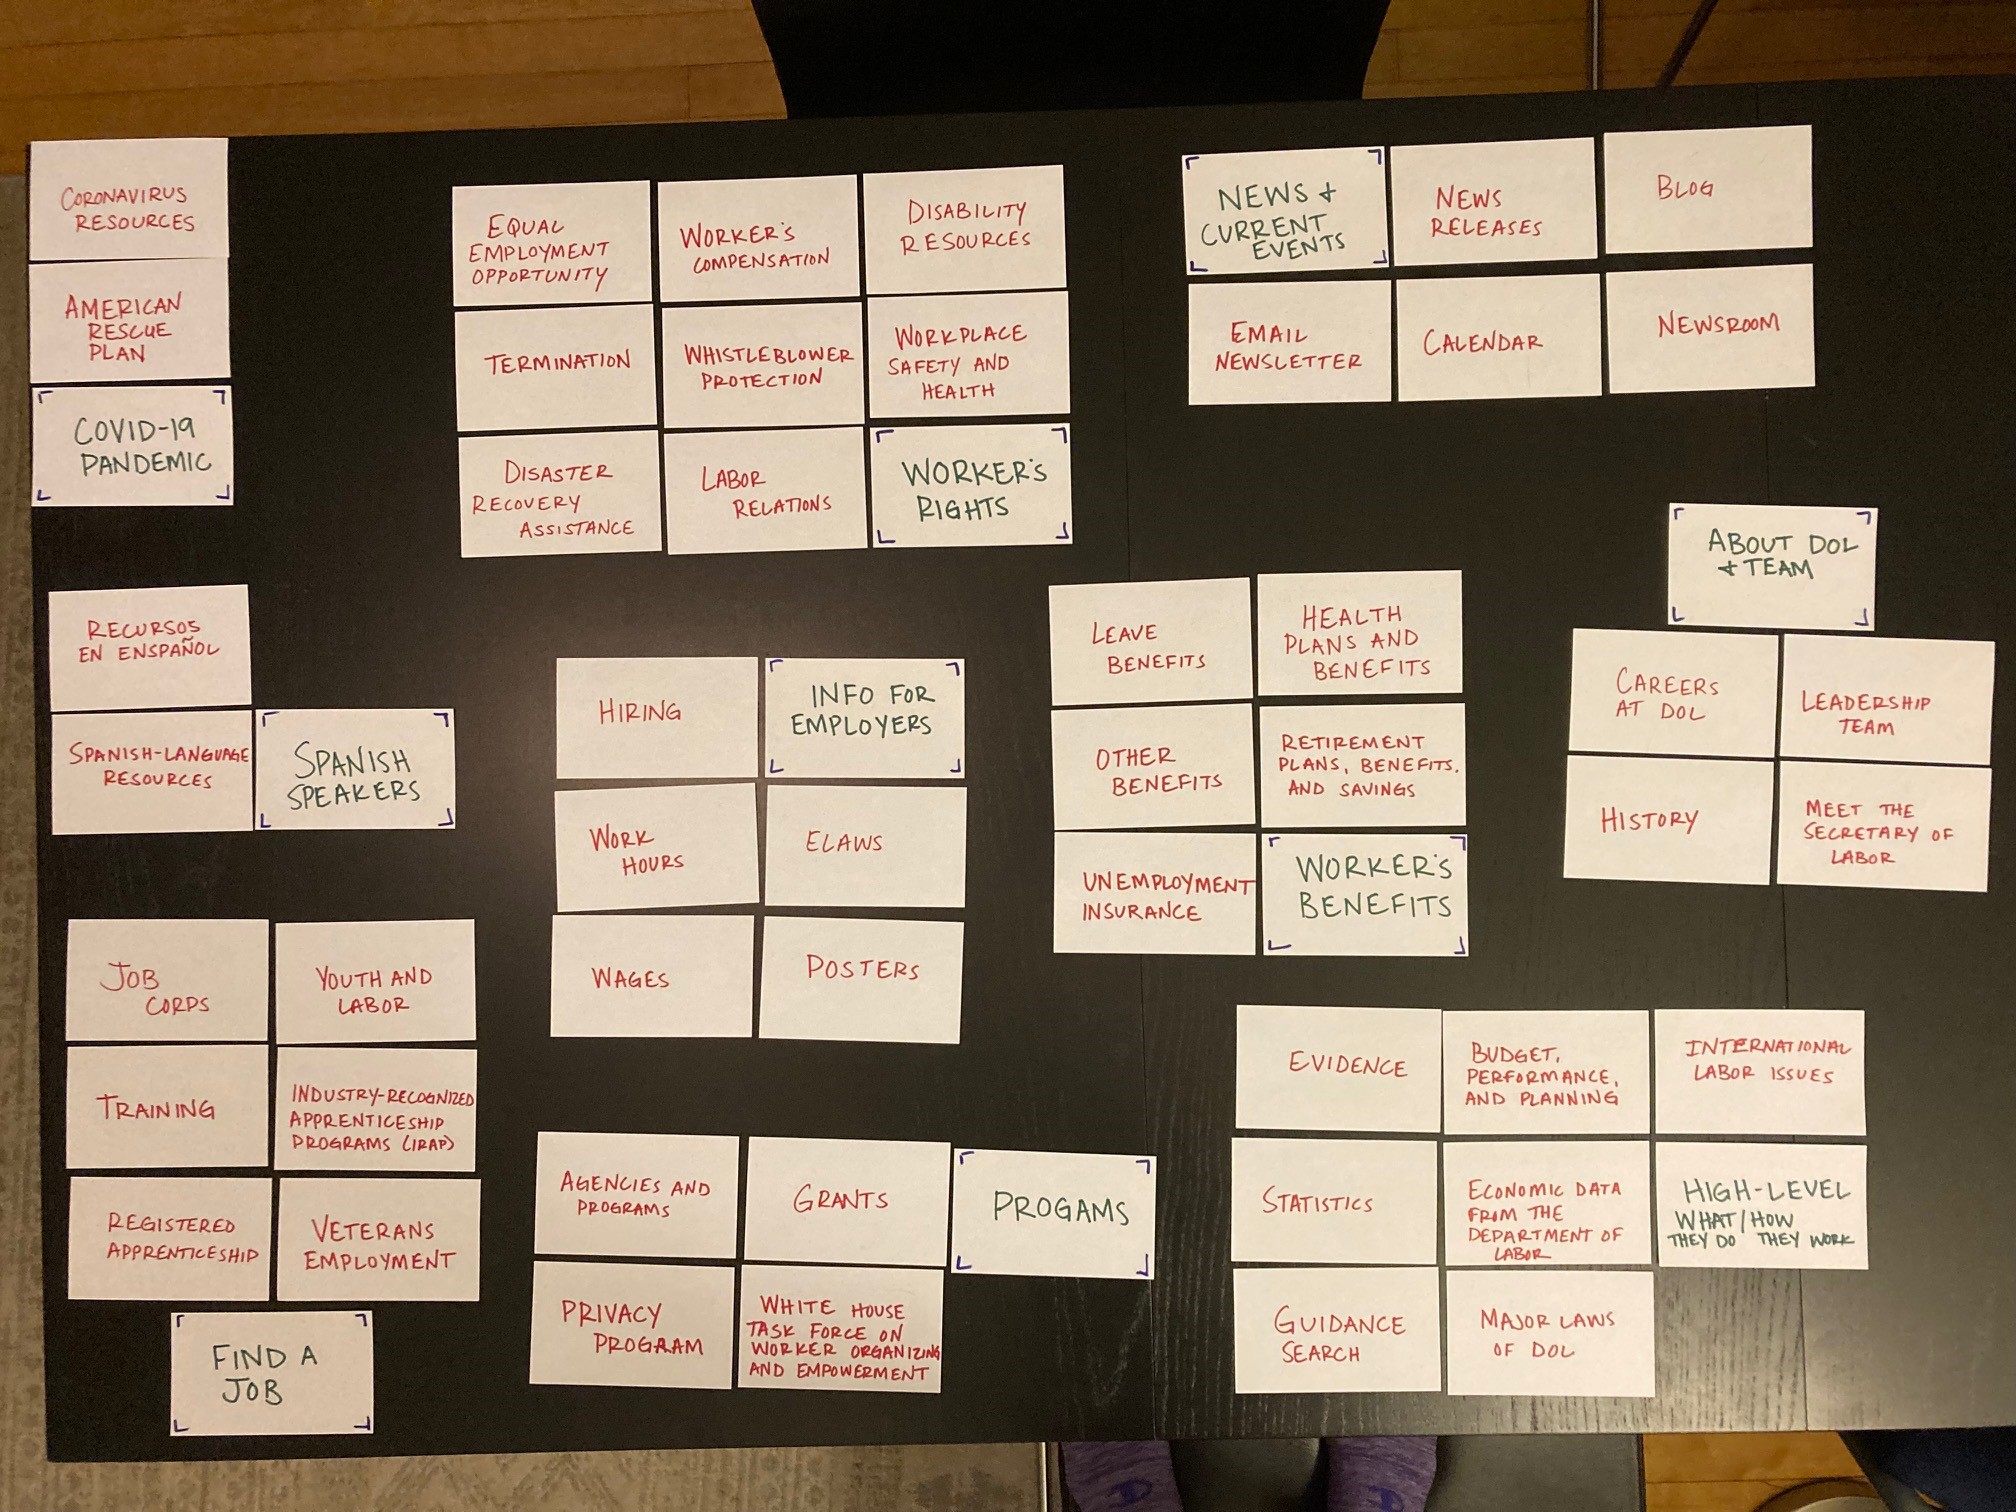 CORONAVIRUS
RESOURCES
AMERICAN
RESCUE
PLAN
COVID-19
PANDEMIC
EQUAL
EMPLOYMENT
OPPORTUNITY
WORKER'S
COMPENSATION
DISABILITY
RESOURCES
TERMINATION
WHISTLEBLOWER
PROTECTION
WORKPLACE
SAFETY AND
HEALTH
DISASTER
RECOVERY
ASSISTANCE
LABOR
RELATIONS
WORKER'S
RIGHTS
NEWS +
CURRENT
EVENTS
NEWS
RELEASES
BLOG
EMAIL
NEWSLETTER
CALENDAR
NEWSROOM
RECURSOS
EN ENSPAÑOL
SPANISH-LANGUAGE
RESOURCES
SPANISH
SPEAKERS
HIRING
INFO FOR
EMPLOYERS
WORK
HOURS
ELAWS
WAGES
POSTERS
LEAVE
BENEFITS
HEALTH
PLANS AND
BENEFITS
OTHER
BENEFITS
RETIREMENT
PLANS, BENEFITS,
AND SAVINGS
UNEMPLOYMENT
INSURANCE
WORKER'S
BENEFITS
ABOUT DOL
+ TEAM
CAREERS
AT DOL
LEADERSHIP
TEAM
HISTORY
MEET THE
SECRETARY OF
LABOR
JOB
CORPS
YOUTH AND
LABOR
TRAINING
INDUSTRY-RECOGNIZED
APPRENTICESHIP
PROGRAMS (IRAP)
REGISTERED
APPRENTICESHIP
VETERANS
EMPLOYMENT
FIND A
JOB
AGENCIES AND
PROGRAMS
GRANTS
PROGAMS
PRIVACY
PROGRAM
WHITE HOUSE
TASK FORCE ON
WORKER ORGANIZING
AND EMPOWERMENT
EVIDENCE
BUDGET,
PERFORMANCE,
AND PLANNING
INTERNATIONAL
LABOR ISSUES
STATISTICS
ECONOMIC DATA
FROM THE
DEPARTMENT OF
LABOR
HIGH-LEVEL
WHAT / HOW
THEY DO THEY WORK
GUIDANCE
SEARCH
MAJOR LAWS
OF DOL